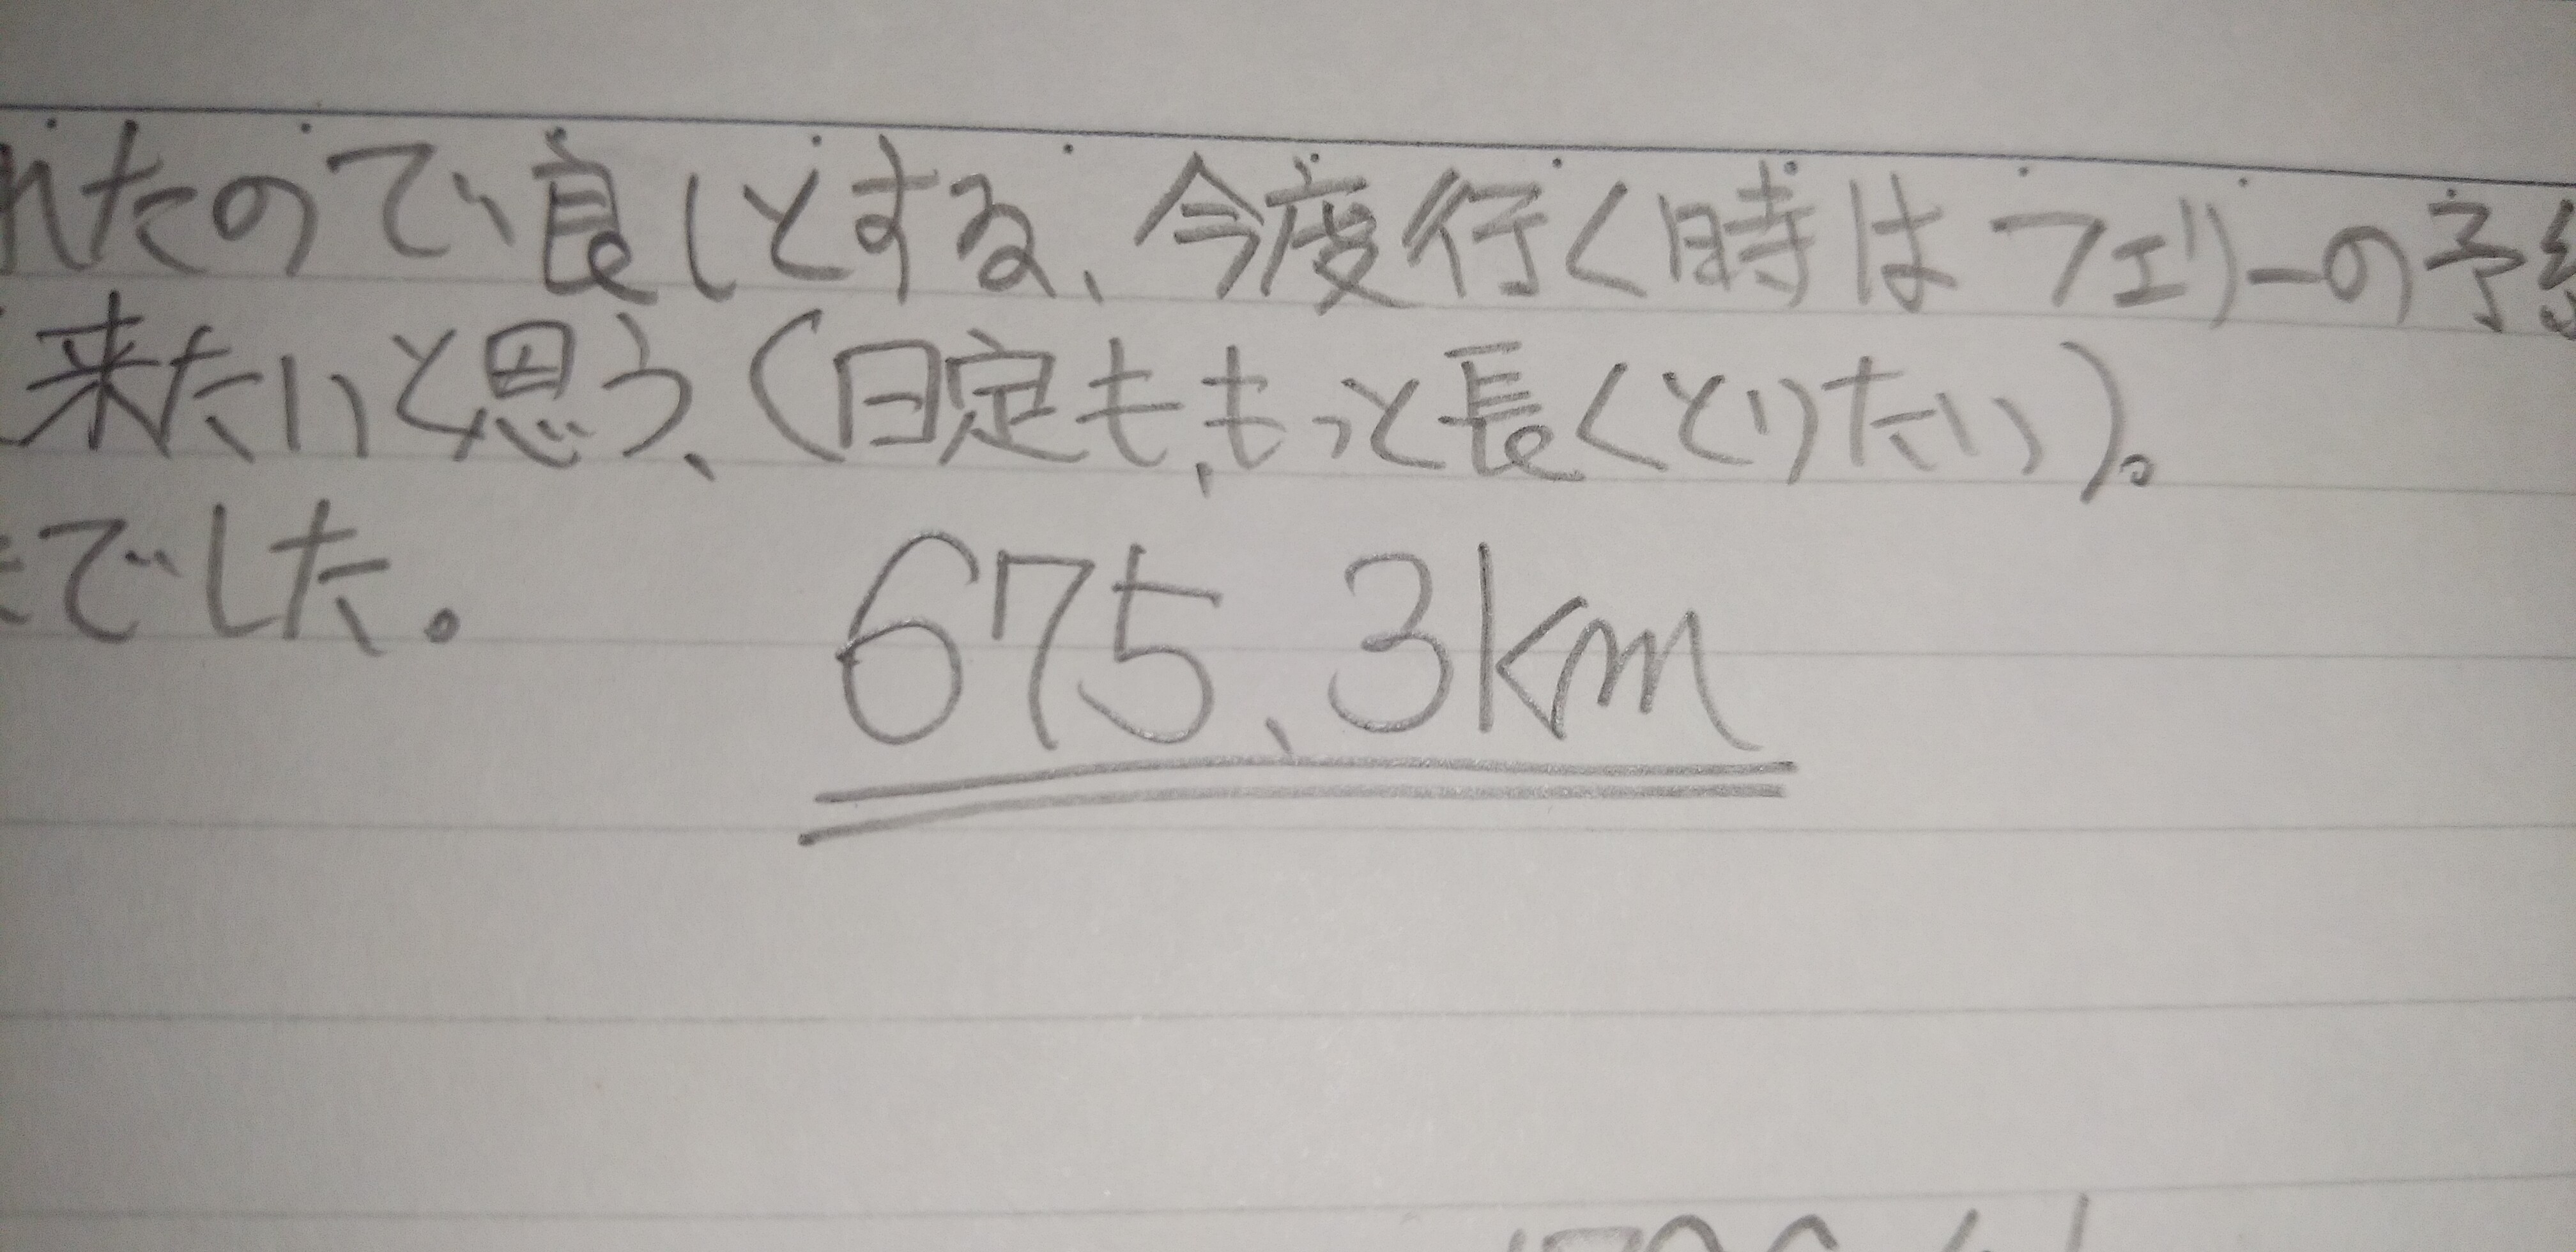 れたので良しとする、今度行く時はフェリーの予
来たいと思う、(日定も、もっと長くとりたい)。
でした。
675.3km